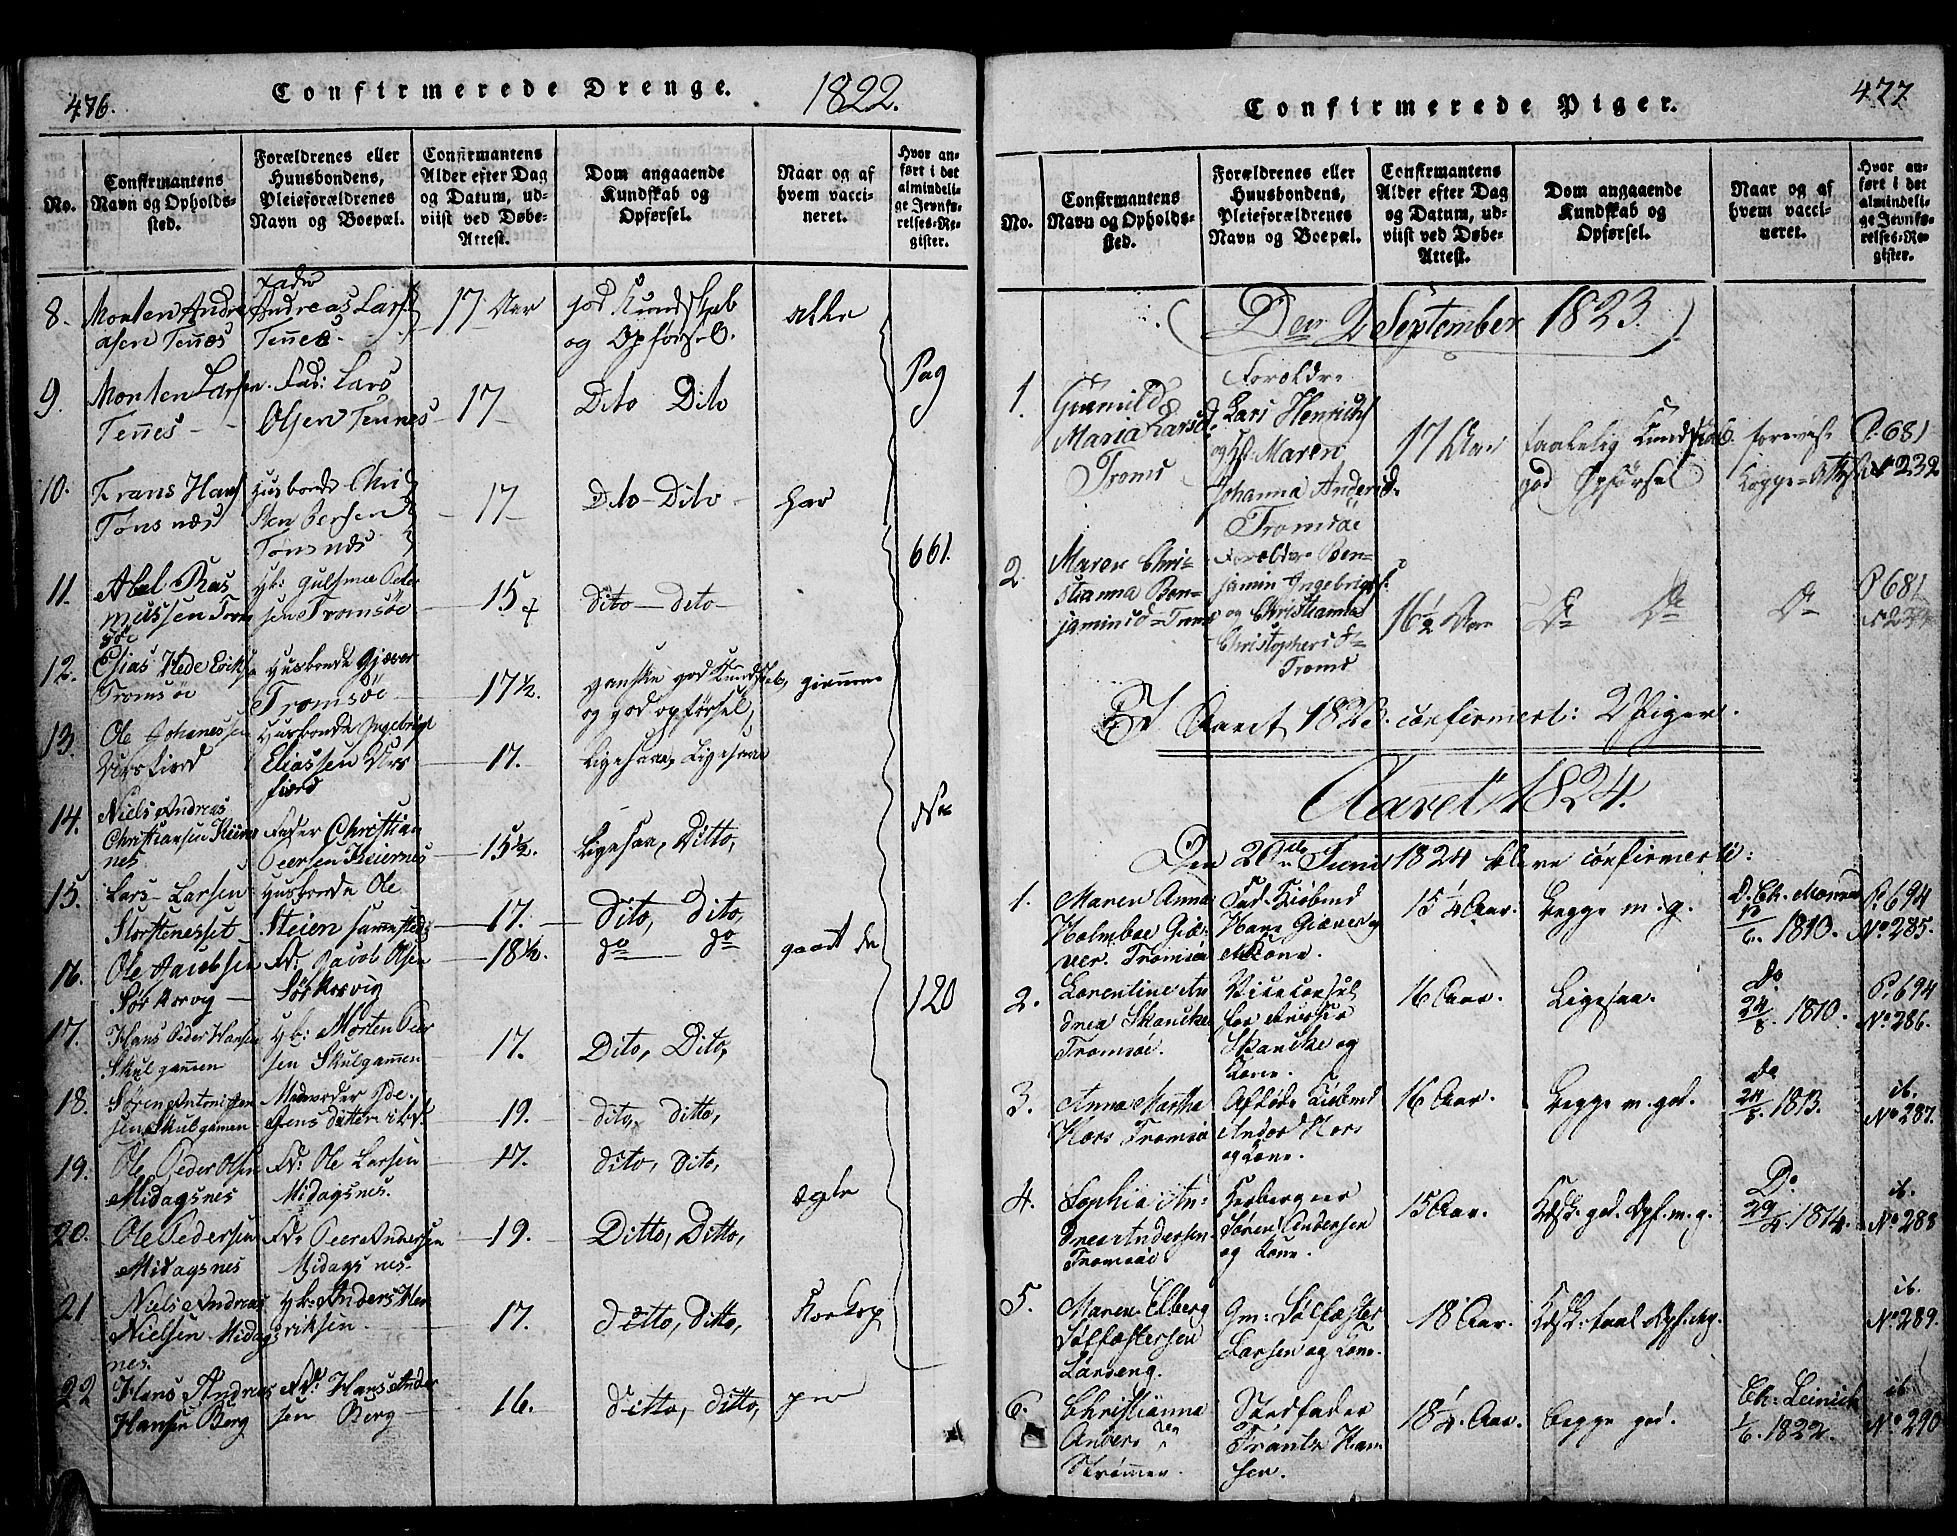 476.
Confirmerede Drenge.
1822.
No.
Confirmantens
Navn og Opholds-
sted.
Forældrenes eller
Huusbondens,
Pleieforældrenes
Navn og Boepæl.
Confirmantens
Alder efter Dag
og Datum, ud-
viist ved Døbe-
Attest.
Dom angaaende
Kundskab og
Opførsel.
Naar og af
hvem vacci-
neret.
Hvor an-
ført i det
almindeli-
ge Jevnfø-
relses-Re-
gister.
8. Morten Andre
asen Tennes
Fader
Andreas Lars
Tennes.
17 Aar
god Kundskab
og Opførsel.
alle
9. Morten Larsen
Tennes
Fad: Lars
Olsen Tennes
17
Dito Dito
Pag
10. Frans Hans
Tønsnæs
Husbonde Chri
sten Persen
Tønsnæs
17
Dito Dito
har
661.
11. Abel Ras
mussen Trom
søe
Petersen Tromsøe
15
dito dito
12. Elias Hede
Tromsøe
Husbonde Gjæver
Tromsøe
17 1/2.
ganske god Kundskab,
og god opførsel,
giennem
13. Ole Johanessen
Ursfiord
Husbonde Ingebrigt
Eliassen Urs
fiord
17.
Ligesaa, Ligesaa
14. Niels Andreas
Christiansen
nes
Fader Christian
Peersen
15 1/2.
Ligesaa, Ditto,
No
15. Lars Larsen
Storstenesset
Husbonde Ole
Steien sammesteds
17.
Dito, Dito,
16. Ole Jacobsen
Sørkorvig
Fd. Jacob Olsen
Sørkorvig
18 1/2.
do do
gaaet de
120
17. Hans Peder Hansen
Skulgammen
Morten Peer
sen Skulgammen
17.
Dito, Dito,
18. Søren
Skulgamen
Jensdatter
19.
dito, ditto,
19. Ole Peder Olsen
Midagsnes
Fd: Ole Larsen
Midagsnes.
17.
dito, dito,
20. Ole Pedersen
Midagsnes
Fd. Peer Andersen
Midagsnes.
19.
Ditto, Ditto,
21 Niels Andreas
Nielsen Midags
nes.
Anders Hen
riksen.
17.
ditto, ditto,
22 Hans Andreas
Hansen Berg
Fd: Hans Ander
sen Berg
16.
ditto, ditto,
Confirmerede Piger.
477
No.
Confirmantens
Navn og Opholds-
sted.
Forældrenes eller
Huusbondens,
Pleieforældrenes
Navn og Boepæl.
Confirmantens
Alder efter Dag
og Datum, ud-
viist ved Døbe-
Attest.
Dom angaaende
Kundskab og
Opførsel.
Naar og af
hvem vacci-
neret.
Hvor an-
ført i det
almindeli-
ge Jevnfø-
relses-Re-
gister.
(Den 2 September 1823.)
1. Gunnild
Maria Larsd.
Troms
Forældre
Lars Henrichs
og Maren
Johanna Andersd.
Tromsöe
17 Aar
taalelig Kundskab
god Opførsel
foreviist
Koppe-Attest
P. 681
No 232
2. Maren Chri-
stianna Ben-
jaminsd. Troms
Forældre Ben-
jamin Ingebrigts.
og Christianna
Christophersd.
Troms
16 1/2 Aar
Do Do
Do
P 681
I Aaret 1823. confirmert: 2 Piger.
Aaret 1824.
Den 20de Junii 1824 bleve confirmerte:
1. Maren Anna
Holmboe Giæ-
ver. Tromsöe
Fad. Kiöbmd
Hans Giæver og
Kone.
15 1/4 Aar.
Begge m. g.
D. Ch. Monrad
1810.
P. 694
No 285.
2. Lorentine An
drea Skancke
Tromsöe.
Viceconsul
Skancke og
Kone.
16 Aar.
Ligesaa.
Do
24/8. 1810.
P. 694
No 286.
3. Anna Martha
Kors Tromsöe
Afdöde Kiöbmd
Anders Kors
og Kone.
16 Aar.
Begge m. god.
Do
24/8. 1813.
ib.
No 287.
4. Sophia An-
drea Andersen
Tromsöe
Herbergeer
Sören Andersen
og Kone.
15 Aar.
Kdsk. god. Opf. m. g.
Do
29/4. 1814.
ib.
No 288
5. Maren Elberg
Sølfæstersen
Larseng.
Gm: Sølfæster
Larsen og Kone.
18 Aar.
Kdsk: taal. Opf. mg.
ib.
No 289.
6. Christianna
Anders
Strømmen.
Stedfader
Frantz Han
sen.
18 1/4. Aar.
Begge god.
1/6. 1822.
ib
No 290